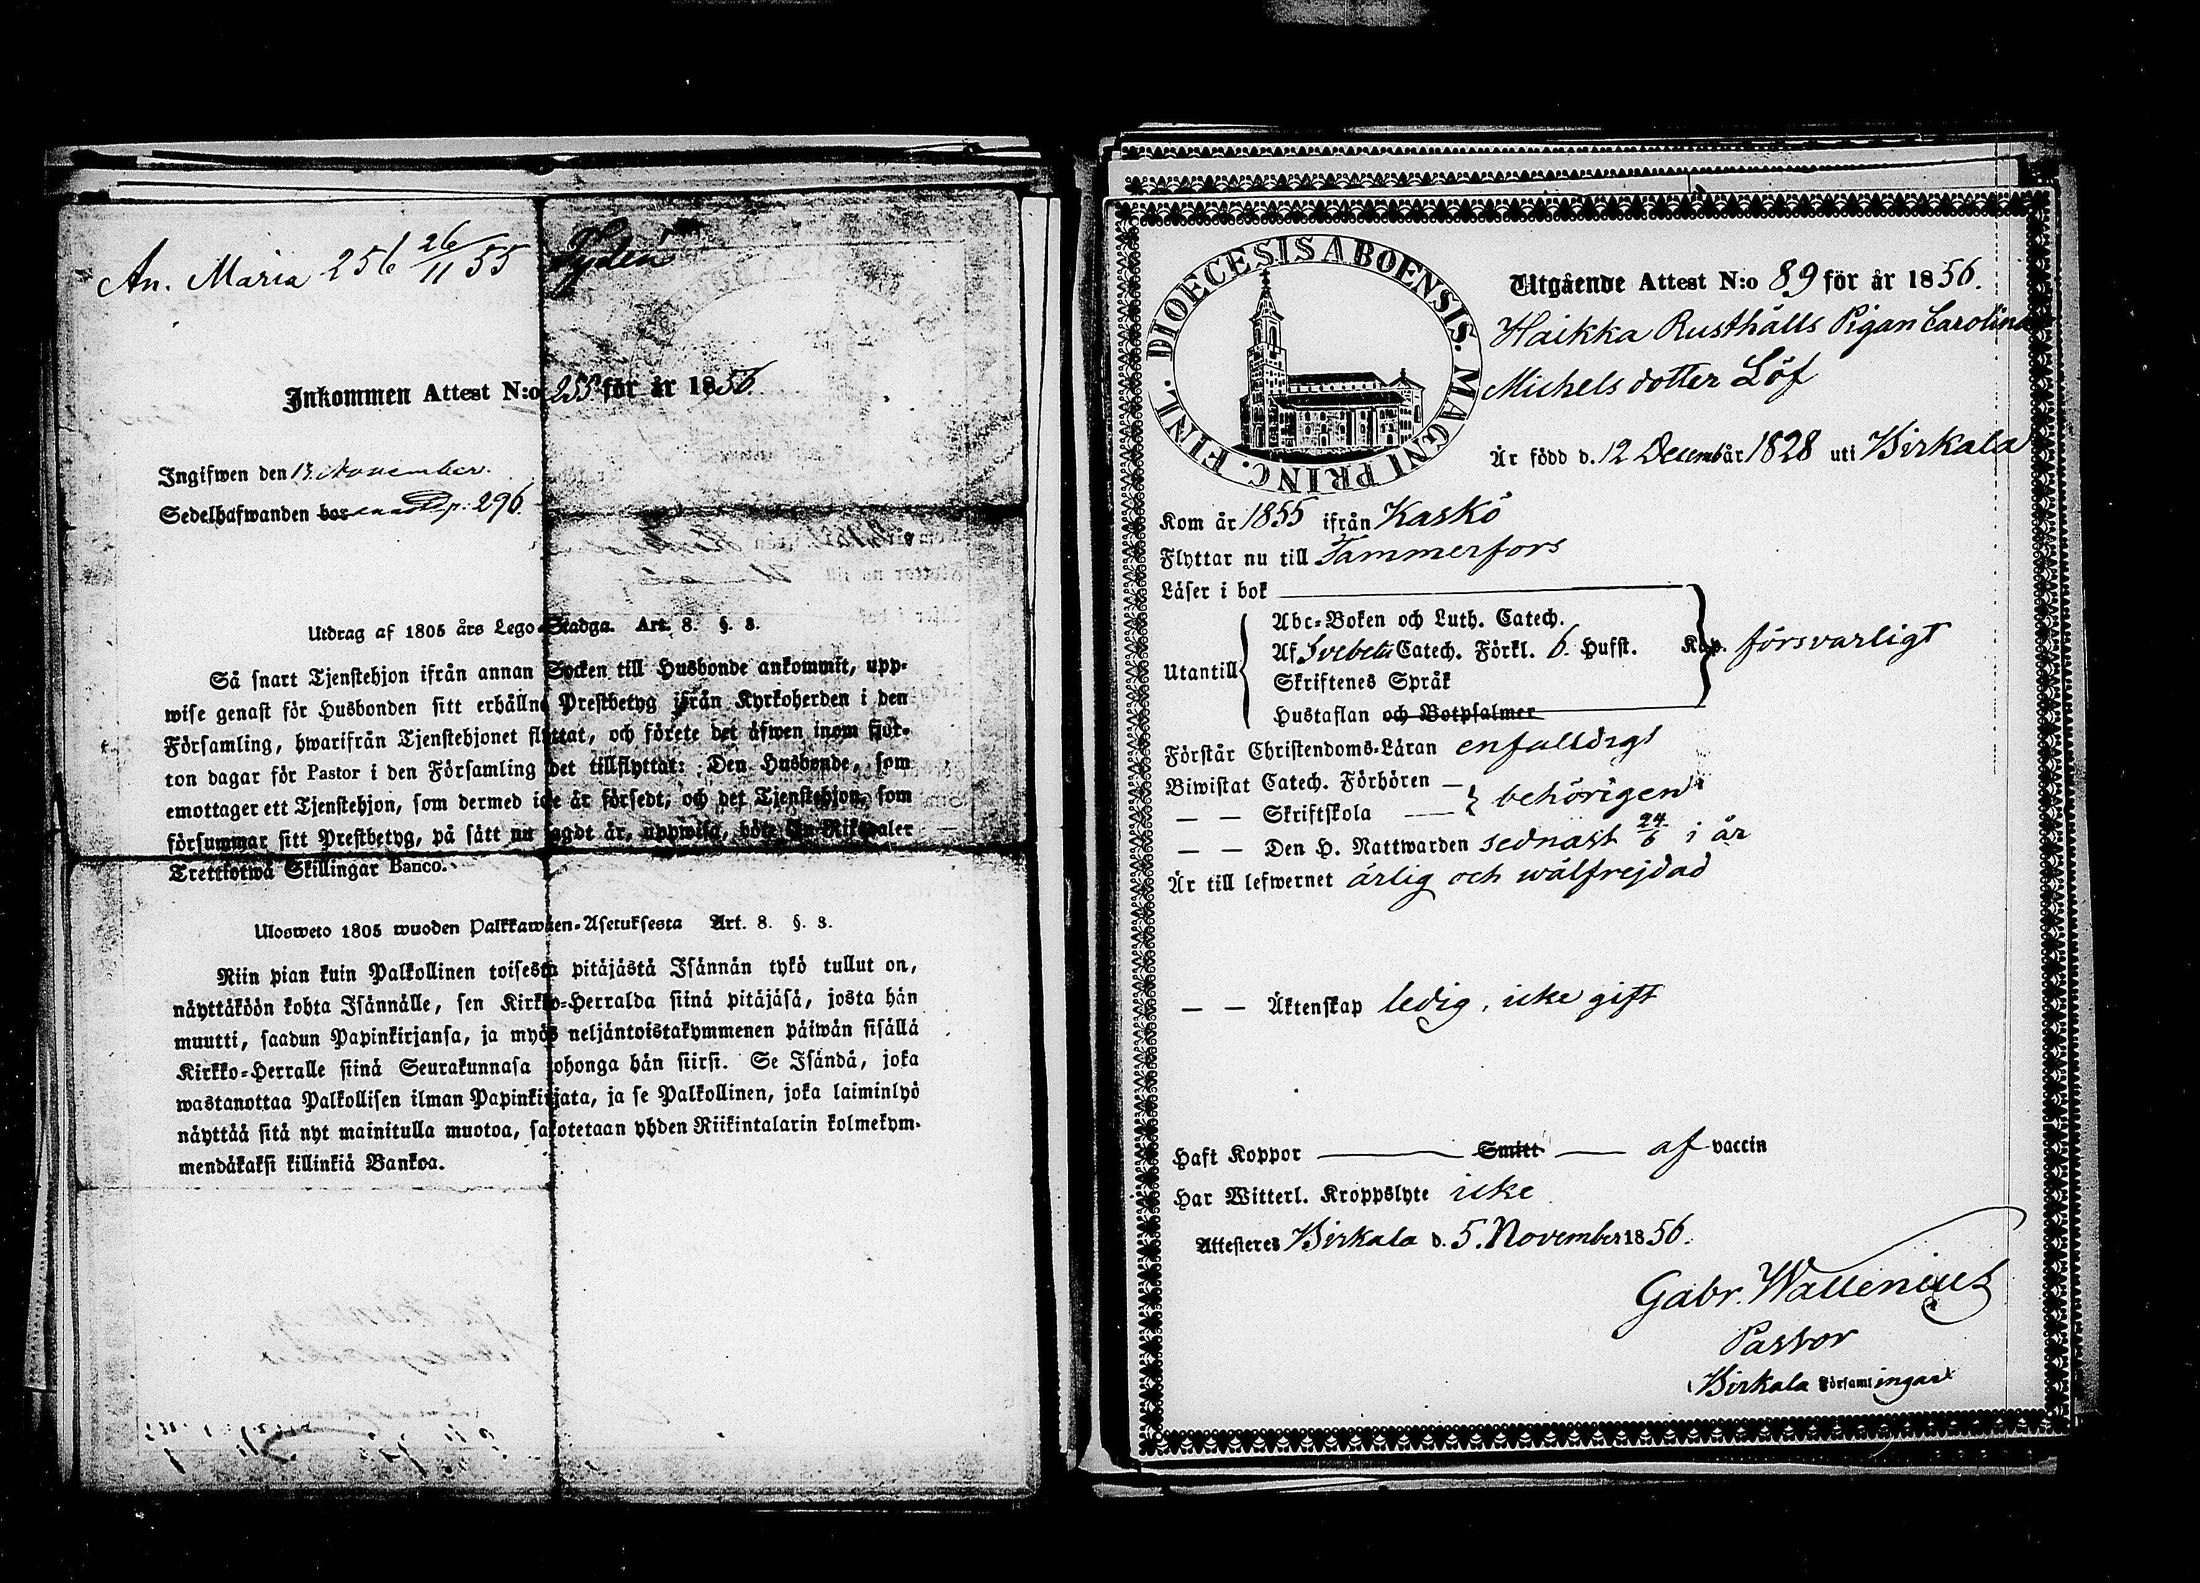 An. Maria 256 26/11 55 Tydén
Inkommen Attest N:o 255 för år 1856.
Ingifwen den 13 November.
Sedelhafwanden bor p: 296.
Utdrag af 1805 års Lego-Stadga. Art. 8. §. 8.
Så snart Tjenstehjon ifrån annan Socken till Husbonde ankommit, upp-
wise genast för Husbonden sitt erhållne Prestbetyg ifrån Kyrkoherden i den
Församling, hwarifrån Tjenstehjonet flyttat, och förete det äfwen inom fjor-
ton dagar för Pastor i den Församling det tillflyttat: Den Husbonde, som
emottager ett Tjenstehjon, som dermed icke är försedt, och det Tjenstehjon, som
försummar sitt Prestbetyg, på sätt nu sagdt är, uppwisa, böte En Riksdaler
Trettiotwå Skillingar Banco.
Ulosweto 1805 wuoden Palkkawäen-Asetuksesta Art. 8. §. 8.
Niin pian kuin Palkollinen toisesta pitäjästä Isännän tykö tullut on,
näyttäköön kohta Isännälle, sen Kirkko-Herralda siinä pitäjäsä, josta hän
muutti, saadun Papinkirjansa, ja myös neljäntoistakymmenen päiwän sisällä
Kirkko-Herralle siinä Seurakunnasa johonga hän siirsi. Se Isändä, joka
wastanottaa Palkollisen ilman Papinkirjata, ja se Palkollinen, joka laiminlyö
näyttää sitä nyt mainitulla muotoa, sakotetaan yhden Riikintalarin kolmekym-
mendäkaksi killinkiä Bankoa.
DIOECESIS ABOENSIS. MAGNI PRINC. FINL.
Utgående Attest N:o 89 för år 1856.
Haikka Rusthålls Pigan Carolina
Michelsdotter Löf
Är född d. 12 Decemb år 1828 uti Birkala
Kom år 1855 ifrån Kaskö
Flyttar nu till Tammerfors
Läser i bok
Utantill
Abc-Boken och Luth. Catech.
Af Svebelii Catech. Förkl. 6. Hufst. Kap. försvarligt
Skriftenes Språk
Hustaflan och Botpsalmer
Förstår Christendoms-Läran enfalldigt
Biwistat Catech. Förhören
— — Skriftskola — behörigen
— — Den H. Nattwarden sednast 24/6 i år
Är till lefwernet ärlig och wälfrejdad
— — Äktenskap ledig, icke gift
Haft Koppor — Smitt — af vaccin
Har Witterl. Kroppslyte icke
Attesteres Birkala d. 5. November 1856.
Gabr. Wallenius
Pastor
Birkala Församlingar